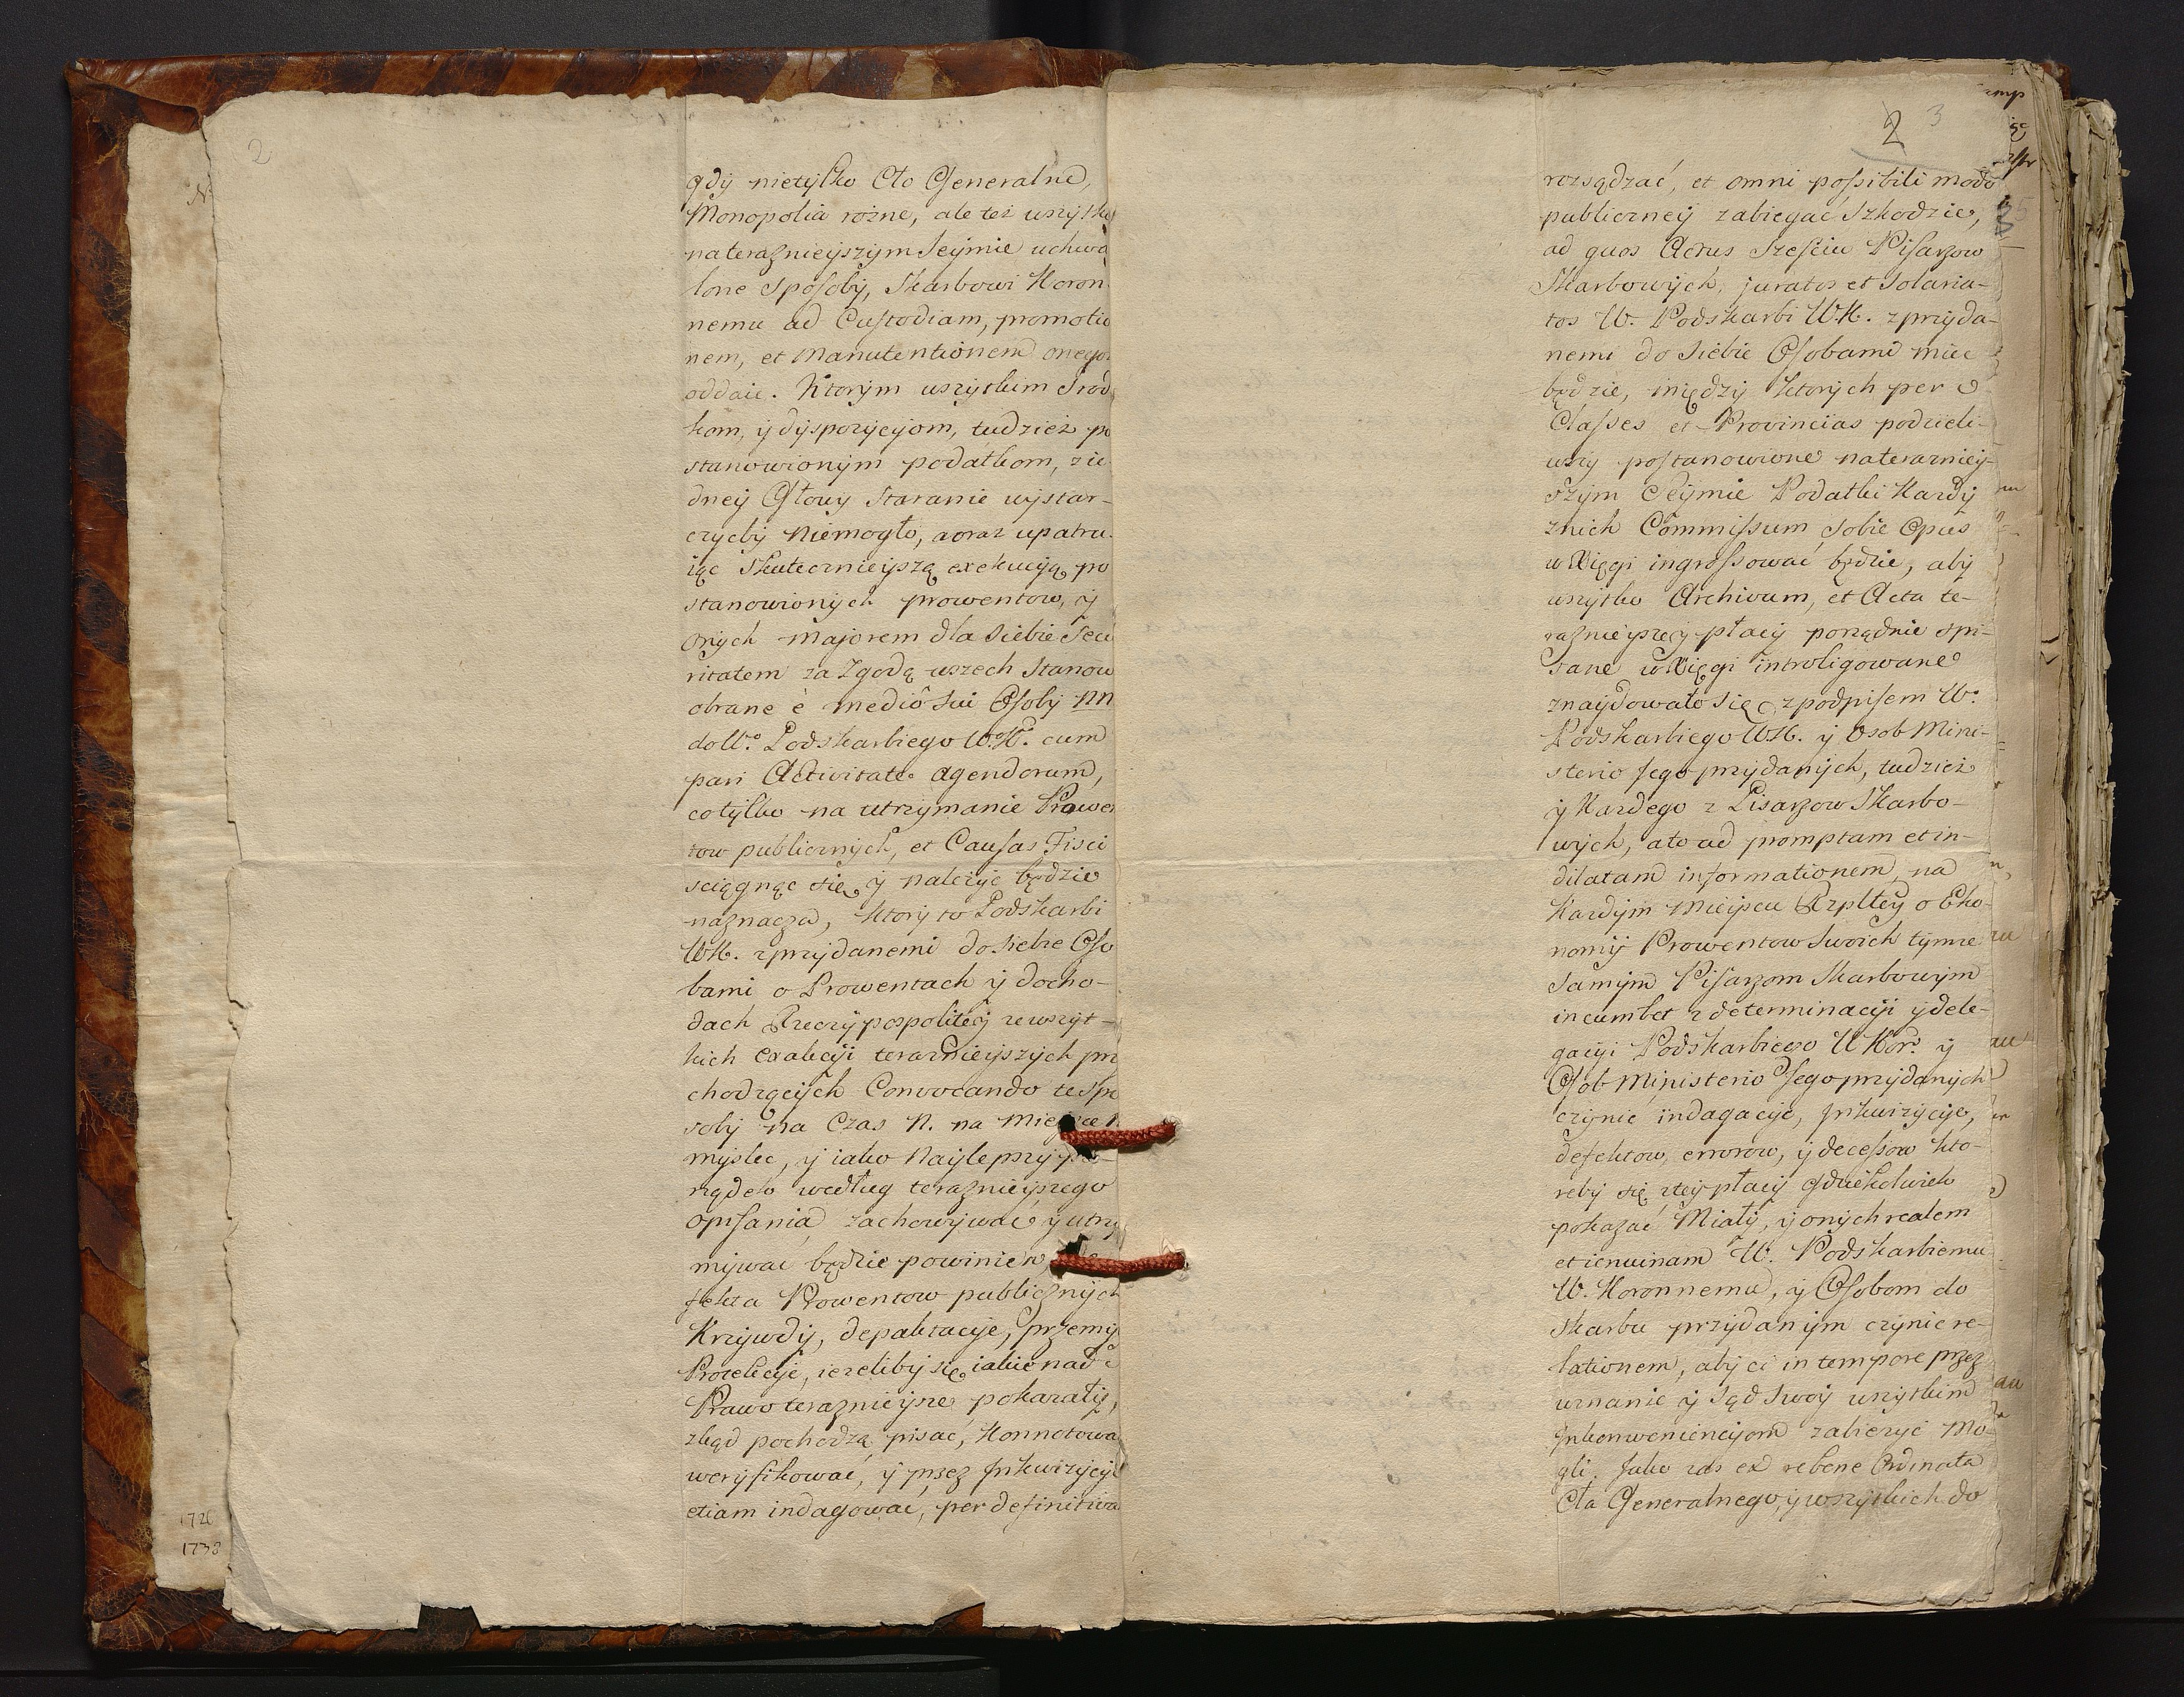 2
gdÿ nietÿlko Cło Generalne,
Monopolia rożne, ale też wszÿstkie
naterazniejszÿm Sejmie uchwa
lone sposobÿ, Skarbowi Koron
nemu ad Custodiam, promotio
nem, et manutentionem onego
oddaie. Ktorÿm wszÿstkim srod
kom, ÿ dÿsporÿcÿom, tudzież po
stanowionÿm podatkom, zie
dneÿ Głowÿ staranie wÿstar-
czÿcbÿ niemogło, a oraz upatru
iąc skutecznieÿszą exekucÿą po
stanowionÿch prowentow, ÿ
onÿch majorem dla siebie secu
ritatem za Zgodą wszech Stanow
obrane è mediô sui Osobÿ NN
do W.o Podskarbiego W.o K.o cum
pari Activitate agendorum,
co tÿlko na utrzymanie Prowen
tow publicznÿch, et Causas Fisci
sciągnąc się ÿ należÿc będzie
naznacza, ktorÿ to Podskarbi
WK. z przÿdanemi do siebie Oso
bami o Prowentach ÿ docho-
dach Rzeczÿpospoliteÿ ze wszÿt-
kich exakcÿi teraznieÿszÿch prz
chodzącÿch Convocando te Spo
sobÿ na Czas N. na Mieÿsce N.
mÿslec, ÿ iako naÿlepszÿ
rządek według terazniejszego
opisania zachowÿwać ÿ utrzÿ
mÿwac będzie powinien,
fekta Prowentow publicznÿch
Krzÿwdÿ, depaktacÿe, przemÿ
Protekcÿe, iezelibÿ się iakie nad
Prawo teraznieÿsze pokazałÿ,
zkąd pochodzą pisać, Konnotowa
werÿfikować, ÿ przez Inkwizÿcÿe
etiam indagowac, per definitiva
1720
1738
2 3
rozsądzać, et omni possibili modo
publiczneÿ zabiegać Szkodzie,
ad quos Actus Szesciu Pisarzow
Skarbowÿch, juratos et Solaria-
tos W. Podskarbi W.K. z przÿda-
nemi do siebie Osobami miec
będzie, międzÿ ktorÿch per
Classes et Provincias podzieli-
wszÿ postanowione naterazniejÿ-
szÿm Seÿmie Podatki Kazdÿ
znich Commissum sobie Opus
w Xięgi ingrossować będzie, abÿ
wszÿstko Archivum, et Acta te-
raznieÿszeÿ płacÿ porządnie spi-
sane w Xięgi introligowane
znaÿdowało się z podpisem W.
Podskarbiego WK. ÿ Osob Mini-
sterio Jego przÿdanÿch, tudzież
ÿ Kazdego z Pisarzow Skarbo-
wÿch, a to ad promptam et in-
dilatam informationem, na
Kazdÿm Mieÿscu Rzpltey o Eko-
nomÿi Prowentow Swoich tÿmze
samÿm Pisarzom Skarbowÿm
incumbet z determinacÿi ÿ dele-
gacÿi Podskarbiego W Kor.o ÿ
Osob Ministerio Jego przÿdanÿch
czÿnic indagacÿe, Inkwizÿcÿe,
defektow, errorow, ÿ decessow kto-
rebÿ się zteÿ płacÿ gdziekolwiek
pokazać Miałÿ, ÿ onÿch realem
et ienuinam W. Podskarbiemu
W. Koronnemu, ÿ Osobom do
Skarbu przÿdanÿm czÿnic re-
lationem, abÿ ci in tempore przez
uznanie ÿ Sąd Swoÿ wszÿtkim
Inkonweniencÿom zabieżÿc mo-
gli. Jako zas ex re bene Ordinata
Cła Generalnego, ÿ wszÿtkich do